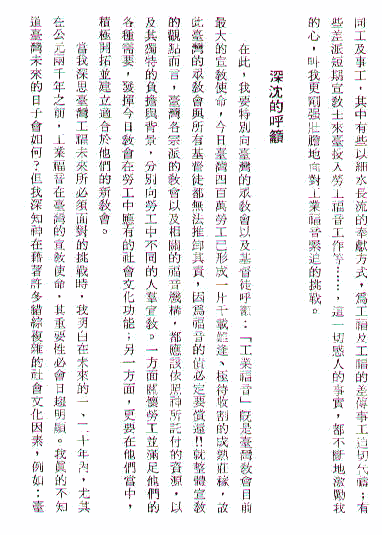 同工及事工，其中有些以細水長流的奉獻方式，爲工福及工福的差傳事工迫切代禱；有
些差派短期宣教士來臺投入勞工福音工作等……，這一切感人的事實，都不斷地激勵我
的心，叫我更剛强壯膽地面對工業福音緊迫的挑戰。
深沈的呼籲
在此，我要特別向臺灣的眾教會以及基督徒呼籲：「工業福音」旣是臺灣敎會目前
最大的宣敎使命，今日臺灣四百萬勞工已形成一片千載難逢、極待收割的成熟莊稼，故
此臺灣的眾敎會與所有基督徒都無法推卸其責，因爲福音的債必定要償還！！就整體宣敎
的觀點而言，臺灣各宗派的敎會以及相關的福音機構，都應該依照神所託付的資源，以
及其獨特的負擔與背景，分別向勞工中不同的人羣宣敎。一方面關懷勞工並滿足他們的
各種需要，發揮今日敎會在勞工中應有的社會文化功能；另一方面，更要在他們當中，
積極開拓並建立適合於他們的新敎會。
當我深思臺灣工福未來所必須面對的挑戰時，我明白在未來的一、二十年內，尤其
在公元兩千年之前，工業福音在臺灣的宣敎使命，其重要性必會日趨明顯。我眞的不知
道臺灣未來的日子會如何？但我深知神在藉著許多錯綜複雜的社會文化因素，例如：臺